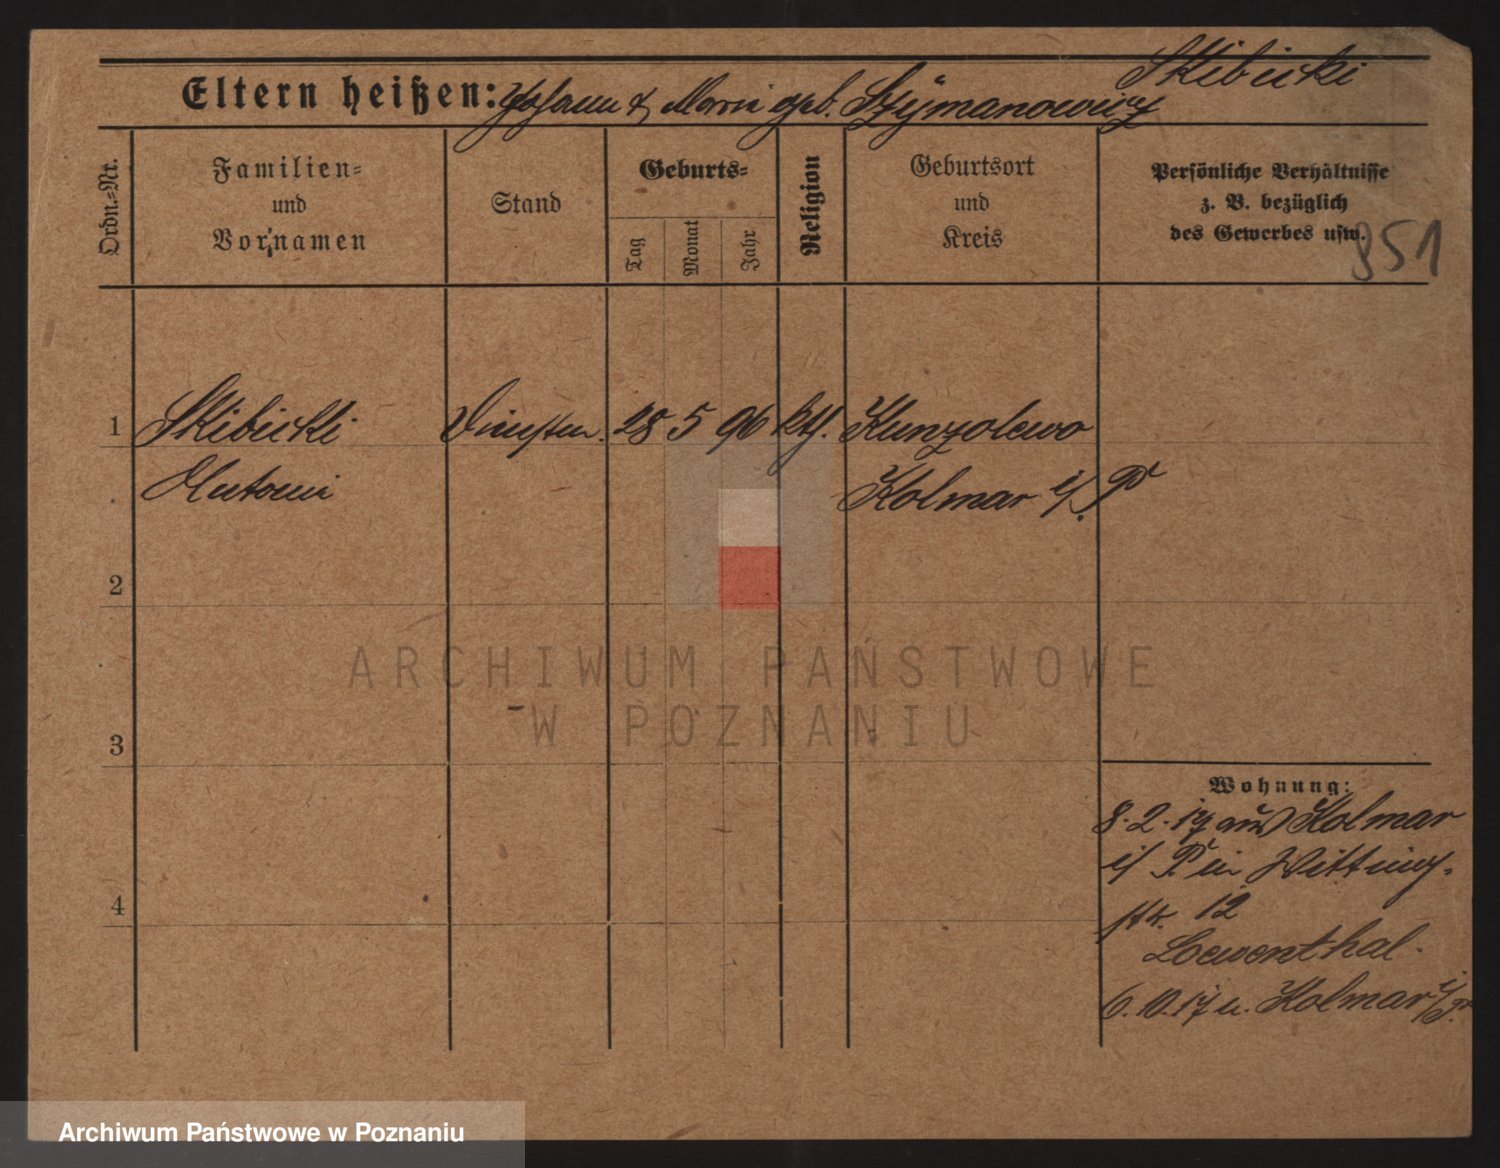 Skibicki
Eltern heißen: Johann & Marie geb. Szÿmanowicz
Ordn.-Nr.
Familien-
und
Vornamen
Stand
Geburts-
Tag
Monat
Jahr
Religion
Geburtsort
und
Kreis
Persönliche Verhältnisse
z. B. bezüglich
des Gewerbes usw.
851
1
Skibicki 28 5 96 kth.
Kolmar i/P.
2
ARCHIWUM PAŃSTWOWE
W POZNANIU
3
Wohnung:
8.2.17 aus Kolmar
i/P in Witting-
str. 12
Loewenthal.
6.10.17 n. Kolmar i/P.
4
Archiwum Państwowe w Poznaniu